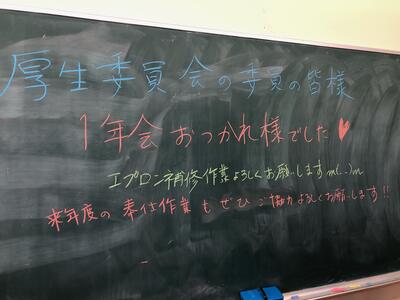 厚生委員会の委員の皆様
1年会おつかれ様でした♥
エプロン補修作業よろしくお願いしますm(..)m
来年度の奉仕作業もぜひご協力よろしくお願いします!!